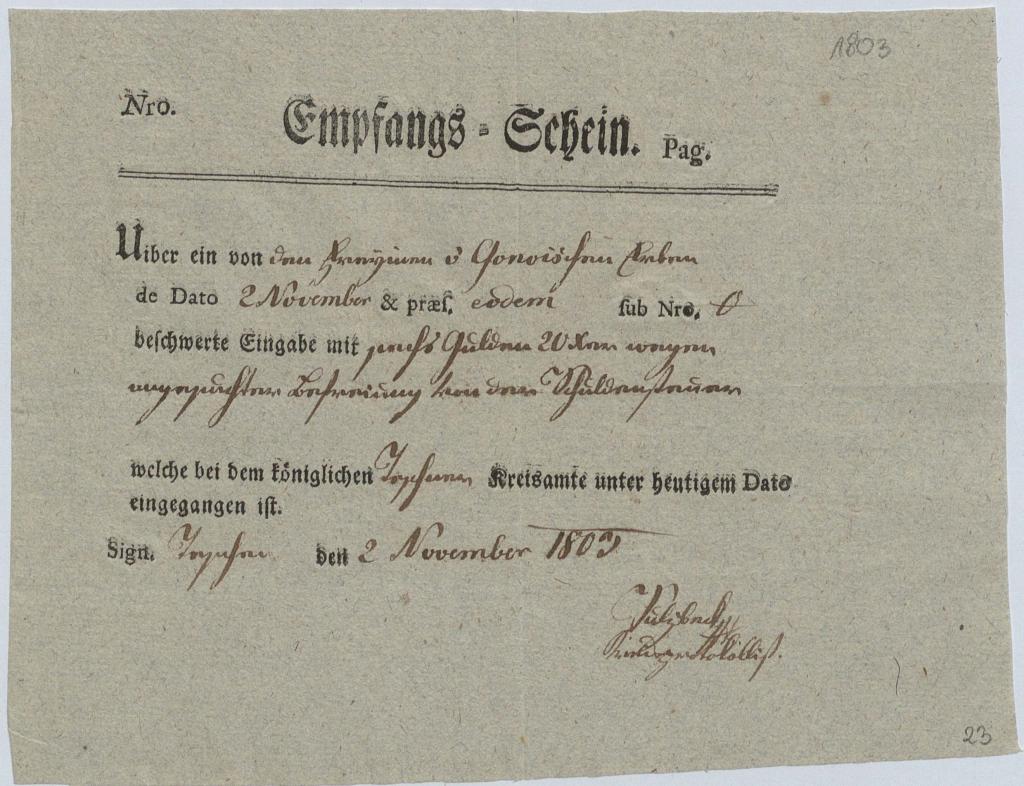 1803
Nro. Empfangs-Schein. Pag.
Uiber ein von den Freyinen v Gorvischen Erben
de Dato 2 November & præs. eodem sub Nro.
beschwerte Eingabe mit sechs Gulden 20 Xer wegen
angesuchter Befreiung von der Schuldensteuer
welche bei dem königlichen Teschner Kreisamte unter heutigem Dato
eingegangen ist.
Sign. Teschen den 2 November 1803
23